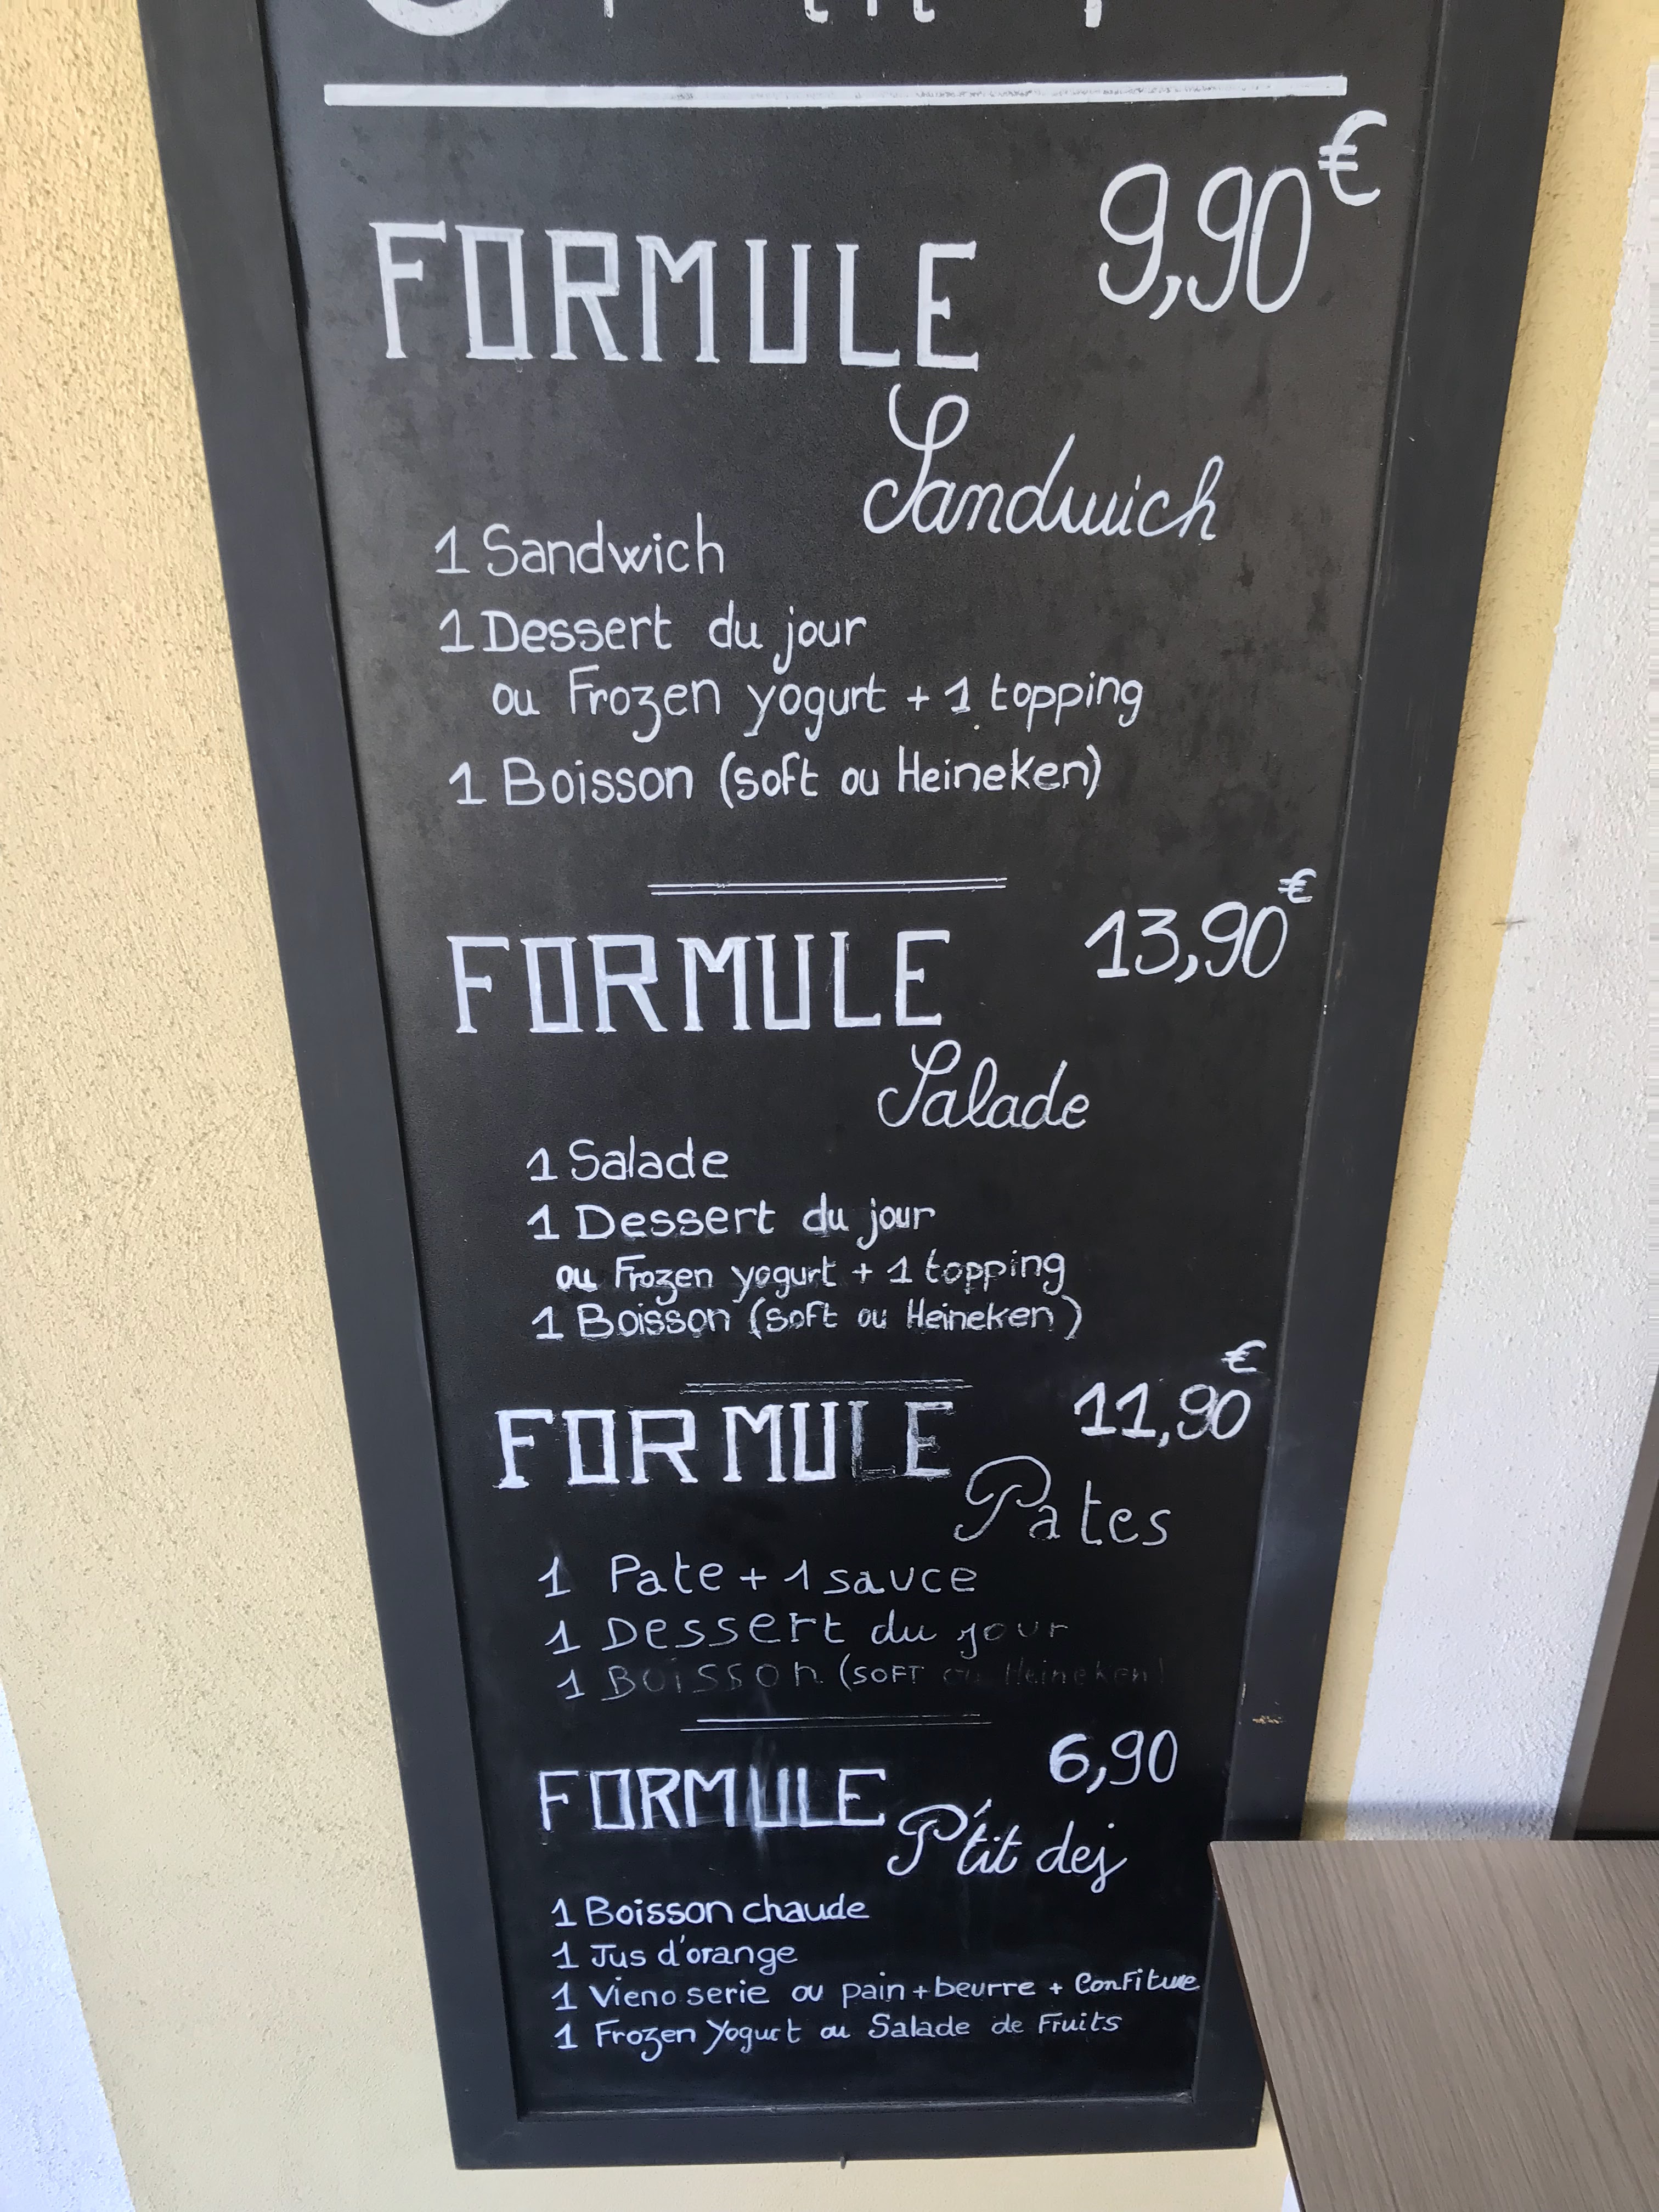 9,90€
FORMULE
Sandwich
1 Sandwich
1 Dessert du jour
ou Frozen yogurt + 1 topping
1 Boisson (soft ou Heineken)
13,90€
FORMULE
Salade
1 Salade
1 Dessert du jour
ou Frozen yogurt + 1 topping
1 Boisson (soft ou Heineken)
11,90€
FORMULE
Pates
1 Pate + 1 sauce
1 Dessert du jour
1 Boisson (SOFT ou Heineken)
6,90
FORMULE
P'tit dej
1 Boisson chaude
1 Jus d'orange
1 Vienoserie ou pain + beurre + Confiture
1 Frozen Yogurt ou Salade de Fruits